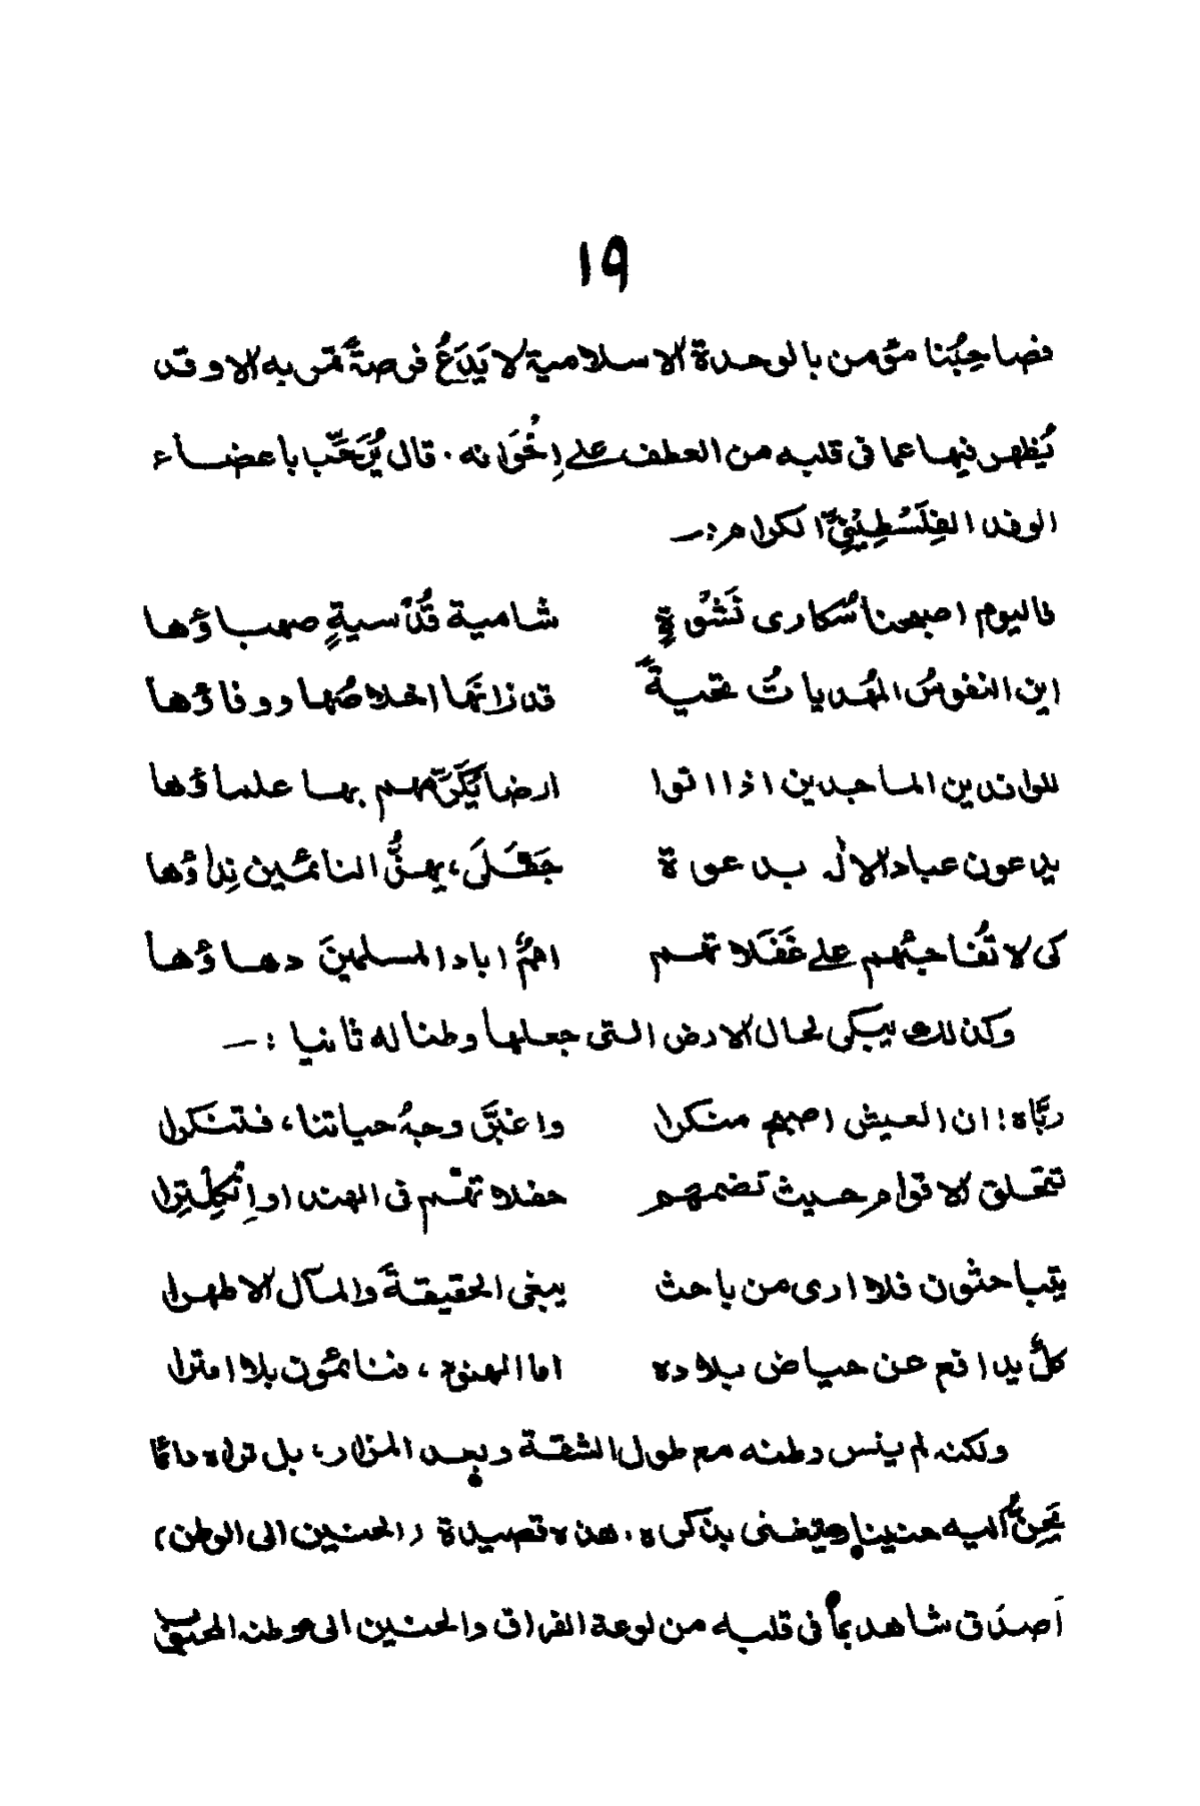 ١٩
فصاحِبُنا مؤمن بالوحدة الاسلامية لا يَدَعُ فرصةً تمر به الا وقد
يُظهر فيها عما فى قلبه من العطف على إخْوَانه. قال يُرَحِّب باعضاء
الوفد الفِلَسْطِيْنِيِّ الكرام :—
فاليوم اصبحنا سُكارى نَشْوةٍ شامية قُدْسيةٍ صهباؤها
اين النفوسُ المُهديات تحيةً قد زانَها اخلاصُها ووفاؤها
للوافدين الماجدين اذا اتوا ارضا يُكَرِّمهم بها علماؤها
يدعون عباد الاله بدعوة جَفَلَى، يهزُّ النائمين نِداؤها
كى لا تُفاجئهم على غَفَلاتهم امٌ اباد المسلمينَ دهاؤها
وكذلك يبكى لحال الارض التى جعلها وطنا له ثانيا :—
ربَّاه! ان العيش اصبح منكرا واغبَّر وجهُ حياتنا، فتنكرا
تتحلق الاقوام حيث تضمهم حفلاتهم فى الهند او إنْكِلْتِرا
يتباحثون فلا ارى من باحث يبغى الحقيقةَ والمآل الاطهرا
كلٌّ يدافع عن حياض بلاده اما الهنود، فنائمون بلا امترا
ولكنه لم ينس وطنه مع طول الشقة وبعد المزار، بل تراه دائما
يَحِنُّ اليه حنينا ويتغنى بذكراه. هذه قصيدة (الحنين الى الوطن)
أصدَق شاهد بما فى قلبه من لوعة الفراق والحنين الى موطنه